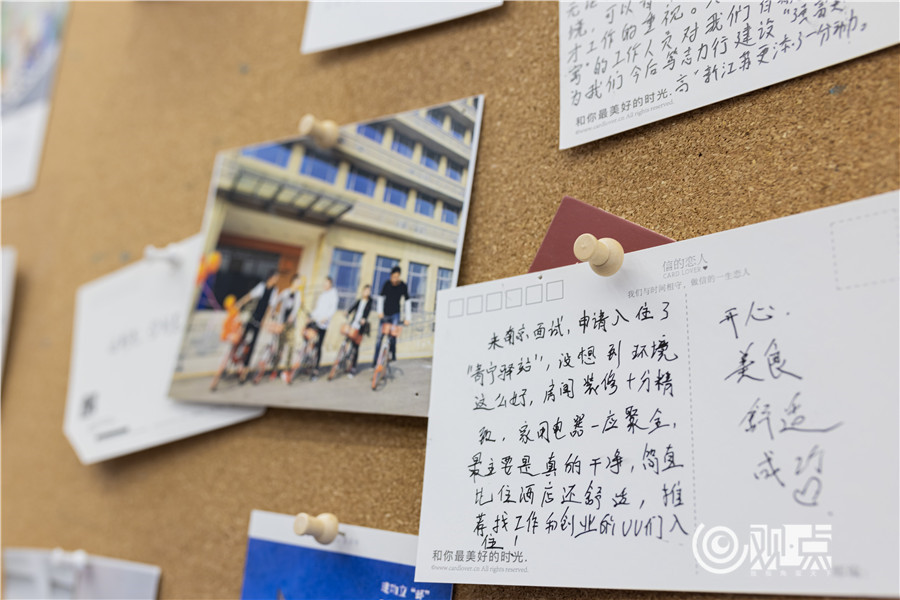 才工作的重视。
的工作人员对我们
为我们今后笃志力行建设"强富美
高"新江苏更添了一分动力。
和你最美好的时光.
©www.cardlover.cn All rights reserved.
信的恋人
CARD LOVER
我们与时间相守，做信的一生恋人
来南京面试，申请入住了
"青宁驿站"，没想到环境
这么好，房间装修十分精
致，家用电器一应聚全，
最主要是真的干净，简直
比住酒店还舒适，推
荐找工作和创业的UU们入
住！
和你最美好的时光.
©www.cardlover.cn All rights reserved.
开心.
美食
舒适
成功
观点